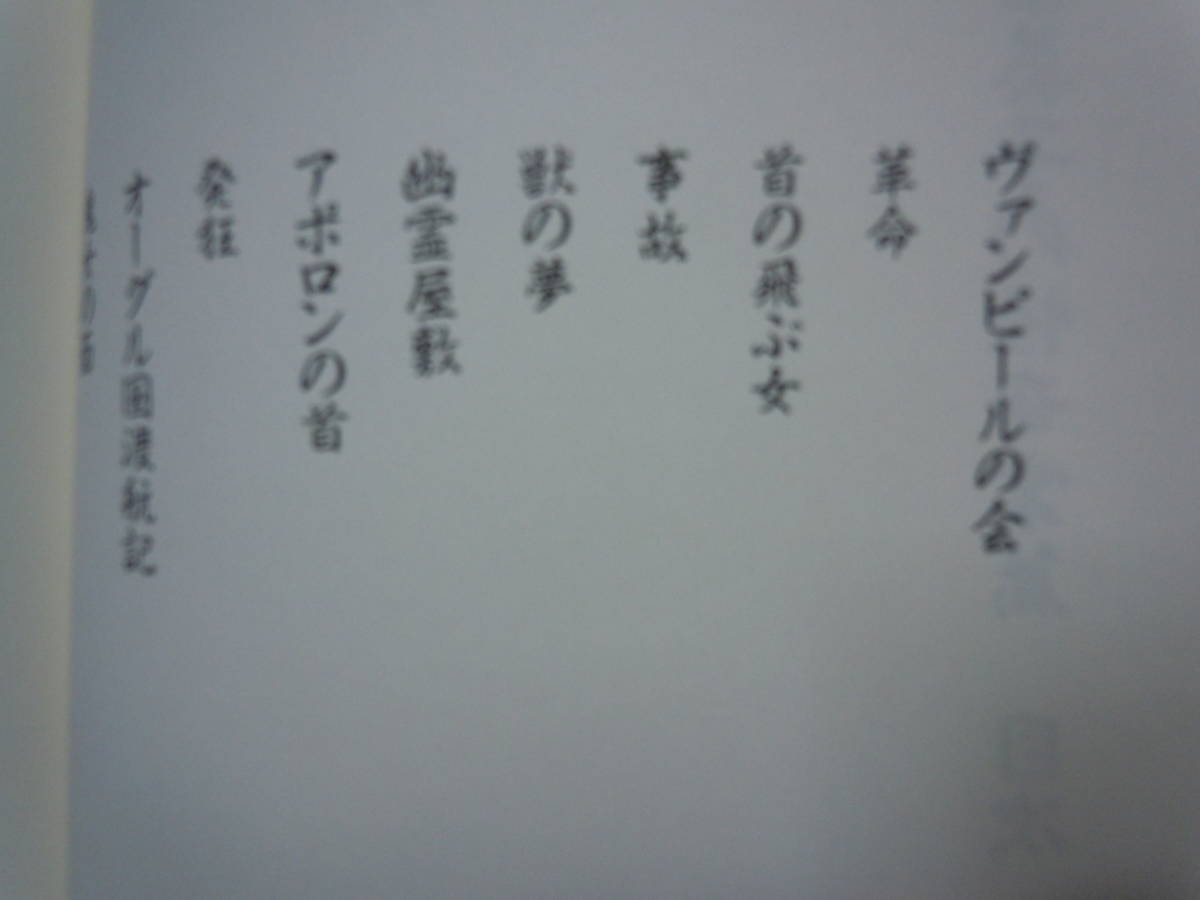 ヴァンピールの会
革命
首の飛ぶ女
事故
獣の夢
幽霊屋敷
アポロンの首
発狂
オーグル国渡航記